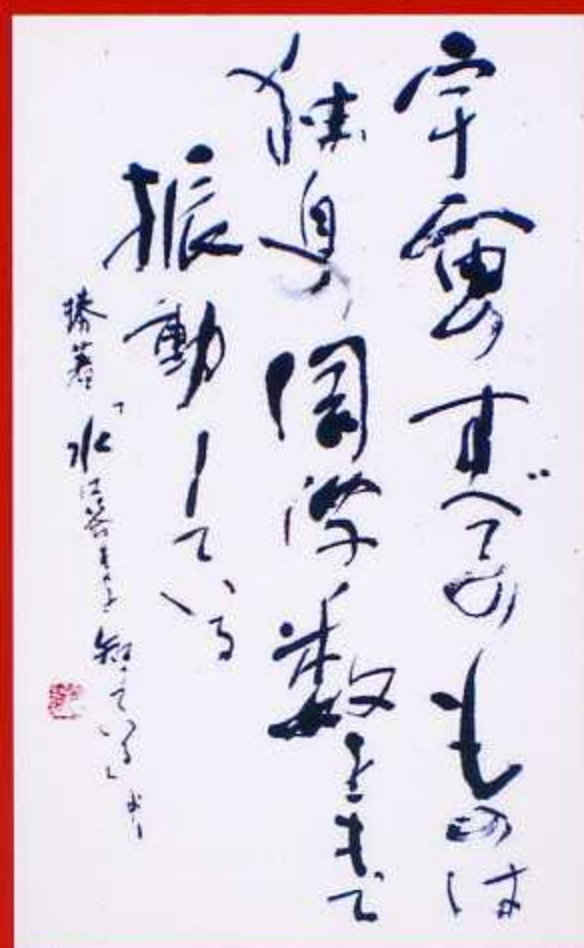 宇宙のすべてのものは
独自の周波数をもて
振動している
拙著「水は答えを知っている」より